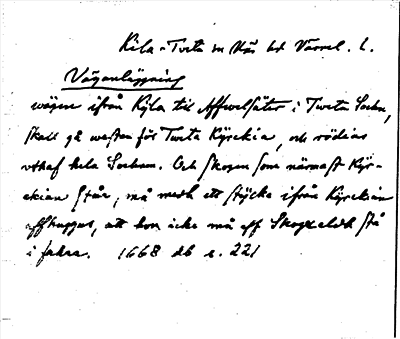 Kila - Tveta sn Näs hd Värml. l.
Väganläggning
wägen ifrån Kyla til Affwelsäter i Tweta Sochn,
skall gå westan för Tweta Kyrckia, och rödias
uthaf hela Sochnen. Och skogen som närmast Kyr-
ckian står, må medh ett stycke ifrån Kyrckian
affhuggas, att hon icke må aff Skogzeldh stå
i fahra. 1668 db s. 221